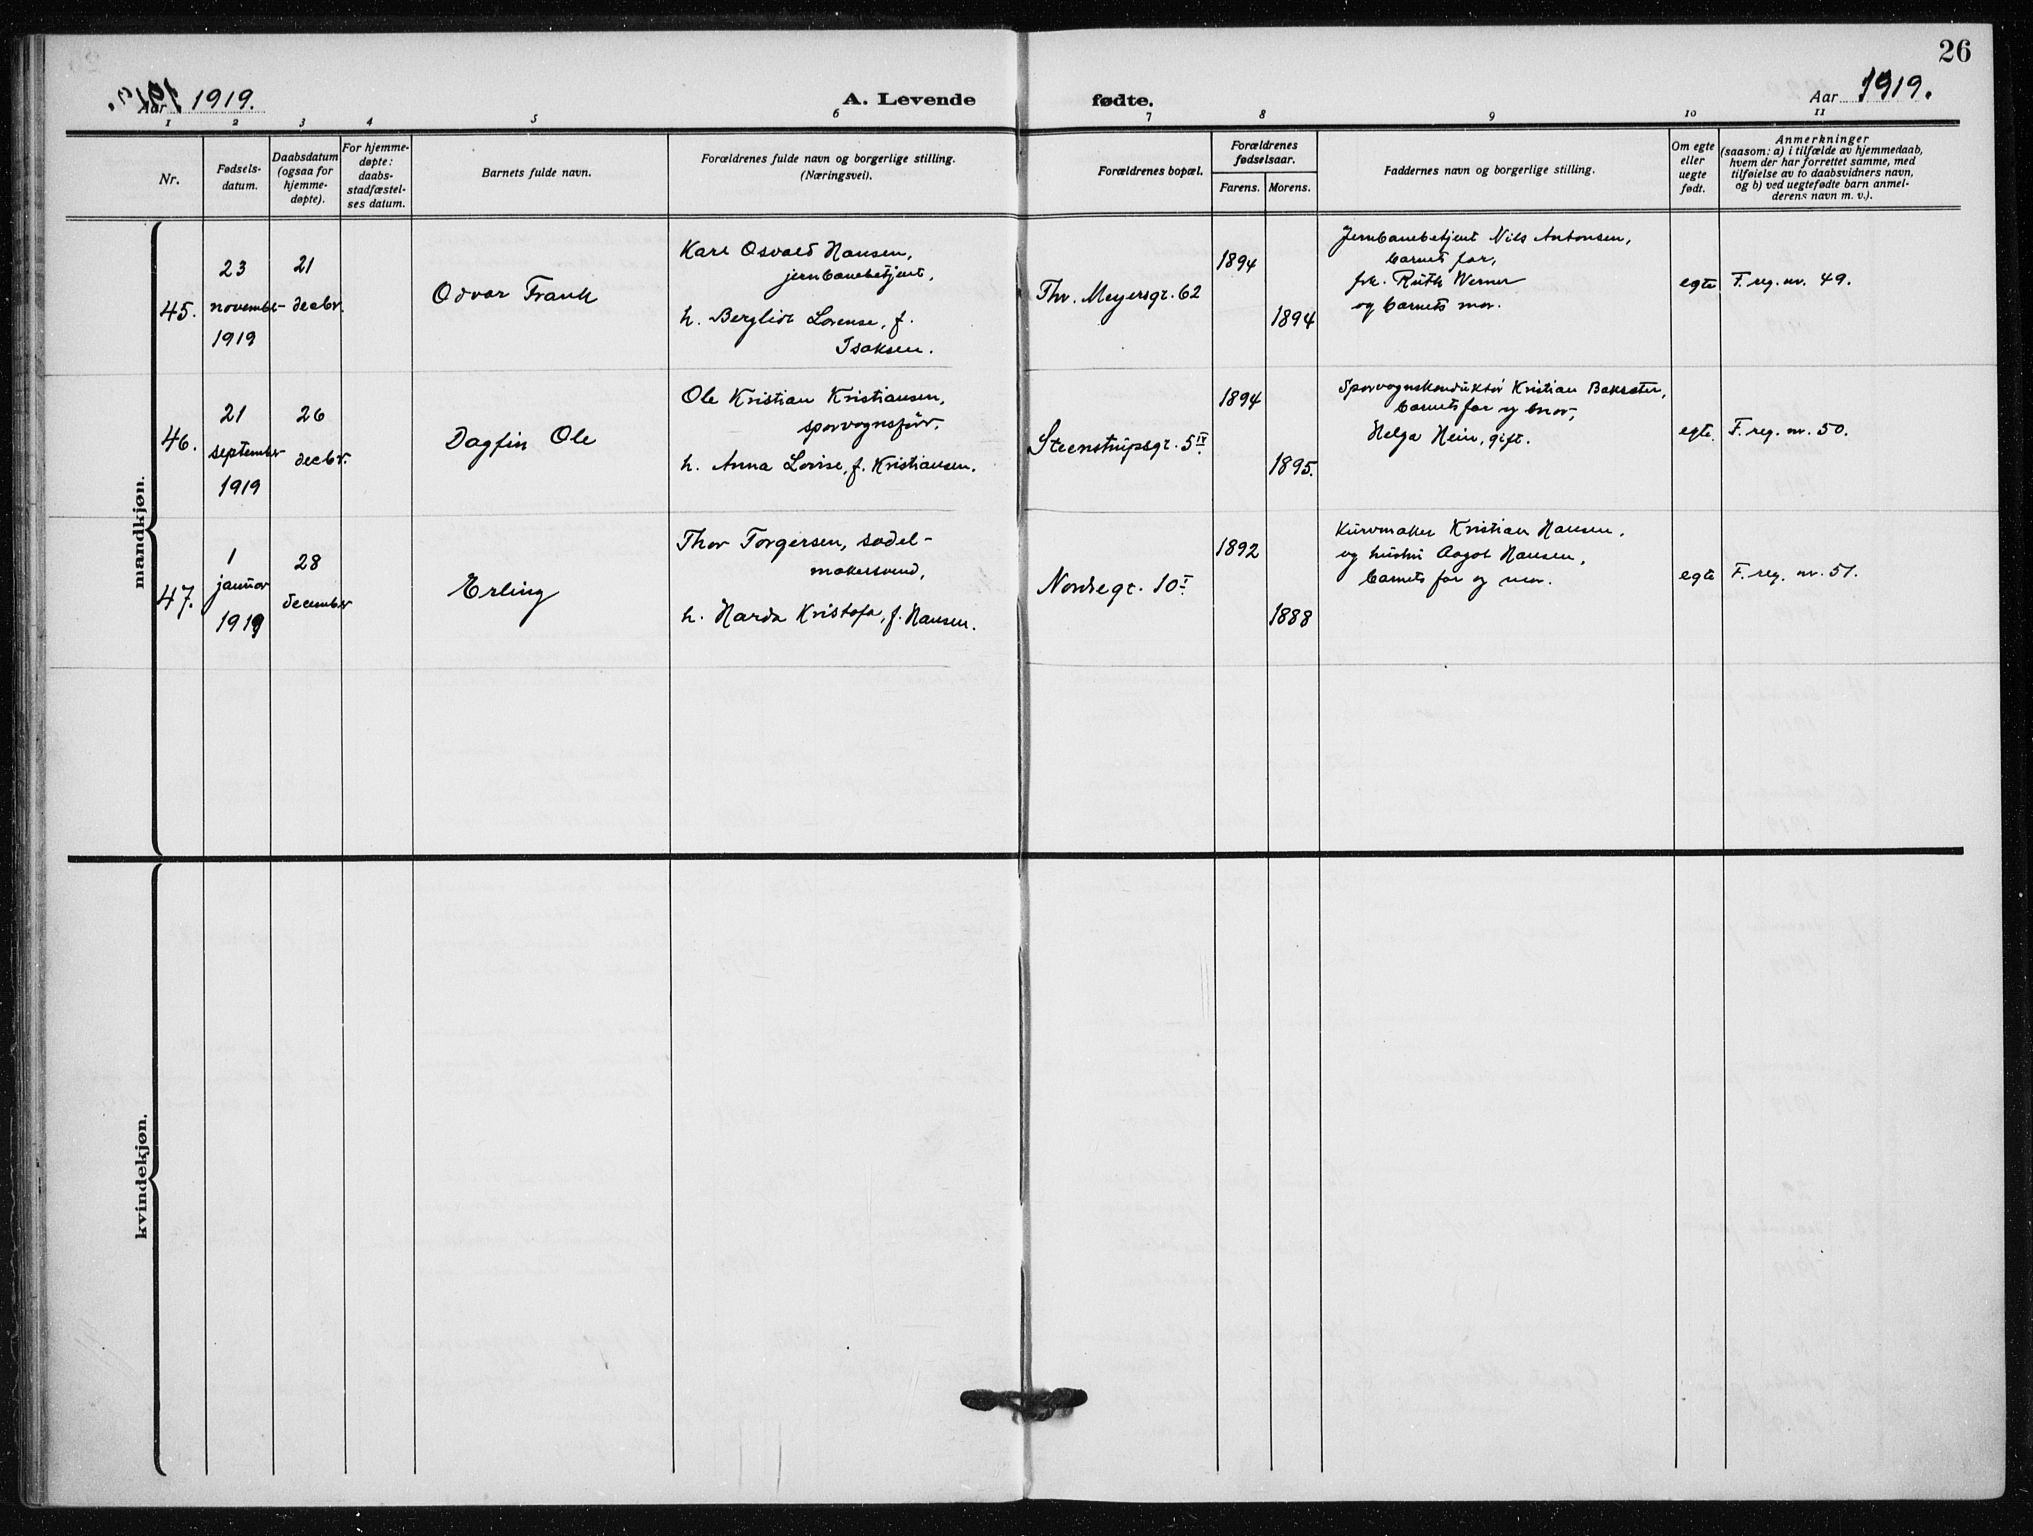 26
Aar 1919.
A. Levende fødte.
Aar 1919.
1 2 3 4 5 6 7 8 9 10 11
Nr.
Fødsels-
datum.
Daabsdatum
(ogsaa for
hjemme-
døpte).
For hjemme-
døpte:
daabs-
stadfæstel-
ses datum.
Barnets fulde navn.
Forældrenes fulde navn og borgerlige stilling.
(Næringsvei).
Forældrenes bopæl.
Forældrenes
fødselsaar.
Farens. Morens.
Faddernes navn og borgerlige stilling.
Om egte
eller
uegte
født.
Anmerkninger
(saasom: a) i tilfælde av hjemmedaab,
hvem der har forrettet samme, med
tilføielse av to daabsvidners navn,
og b) ved uegtefødte barn anmel-
derens navn m. v.).
mandkjøn.
45.
23
november
1919
21
decbr.
Odvar Frank
Karl Osvald Hansen,
jernbanebetjent,
h. Berglidt Lorense, f.
Isaksen.
Thv. Meyersgt. 62
1894
1894
Jernbanebetjent Nils Antonsen,
barnets far,
frk. Ruth Werner
og barnets mor.
egte
F. reg. nr. 49.
46.
21
september
1919
26
decbr.
Dagfin Ole
Ole Kristian Kristiansen,
sporvognsfør.
h. Anna Lovise, f. Kristiansen.
Steenstrupsgt. 5 IV
1894
1895.
Sporvognskonduktør Kristian Baksæter,
barnets far og mor,
Helga Hein, gift.
egte.
F. reg. nr. 50.
47.
1
januar
1919
28
december
Erling
Thor Torgersen, sadel-
makersvend,
h. Harda Kristofa, f. Hansen.
Nordregt. 10 I
1892
1888
Kurvmaker Kristian Hansen,
og hustru Aagot Hansen,
barnets far og mor.
egte
F. reg. nr. 51.
kvindekjøn.